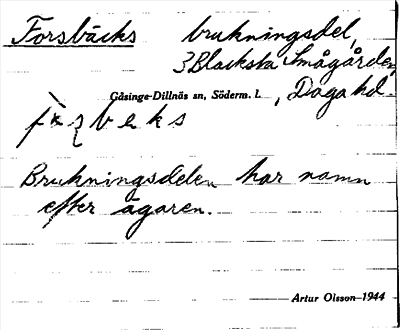 Forsbäcks brukningsdel,
3 Blacksta Smågården,
Gåsinge-Dillnäs sn, Söderm. l. , Daga hd.
Brukningsdelen har namn
efter ägaren.
Artur Olsson-1944